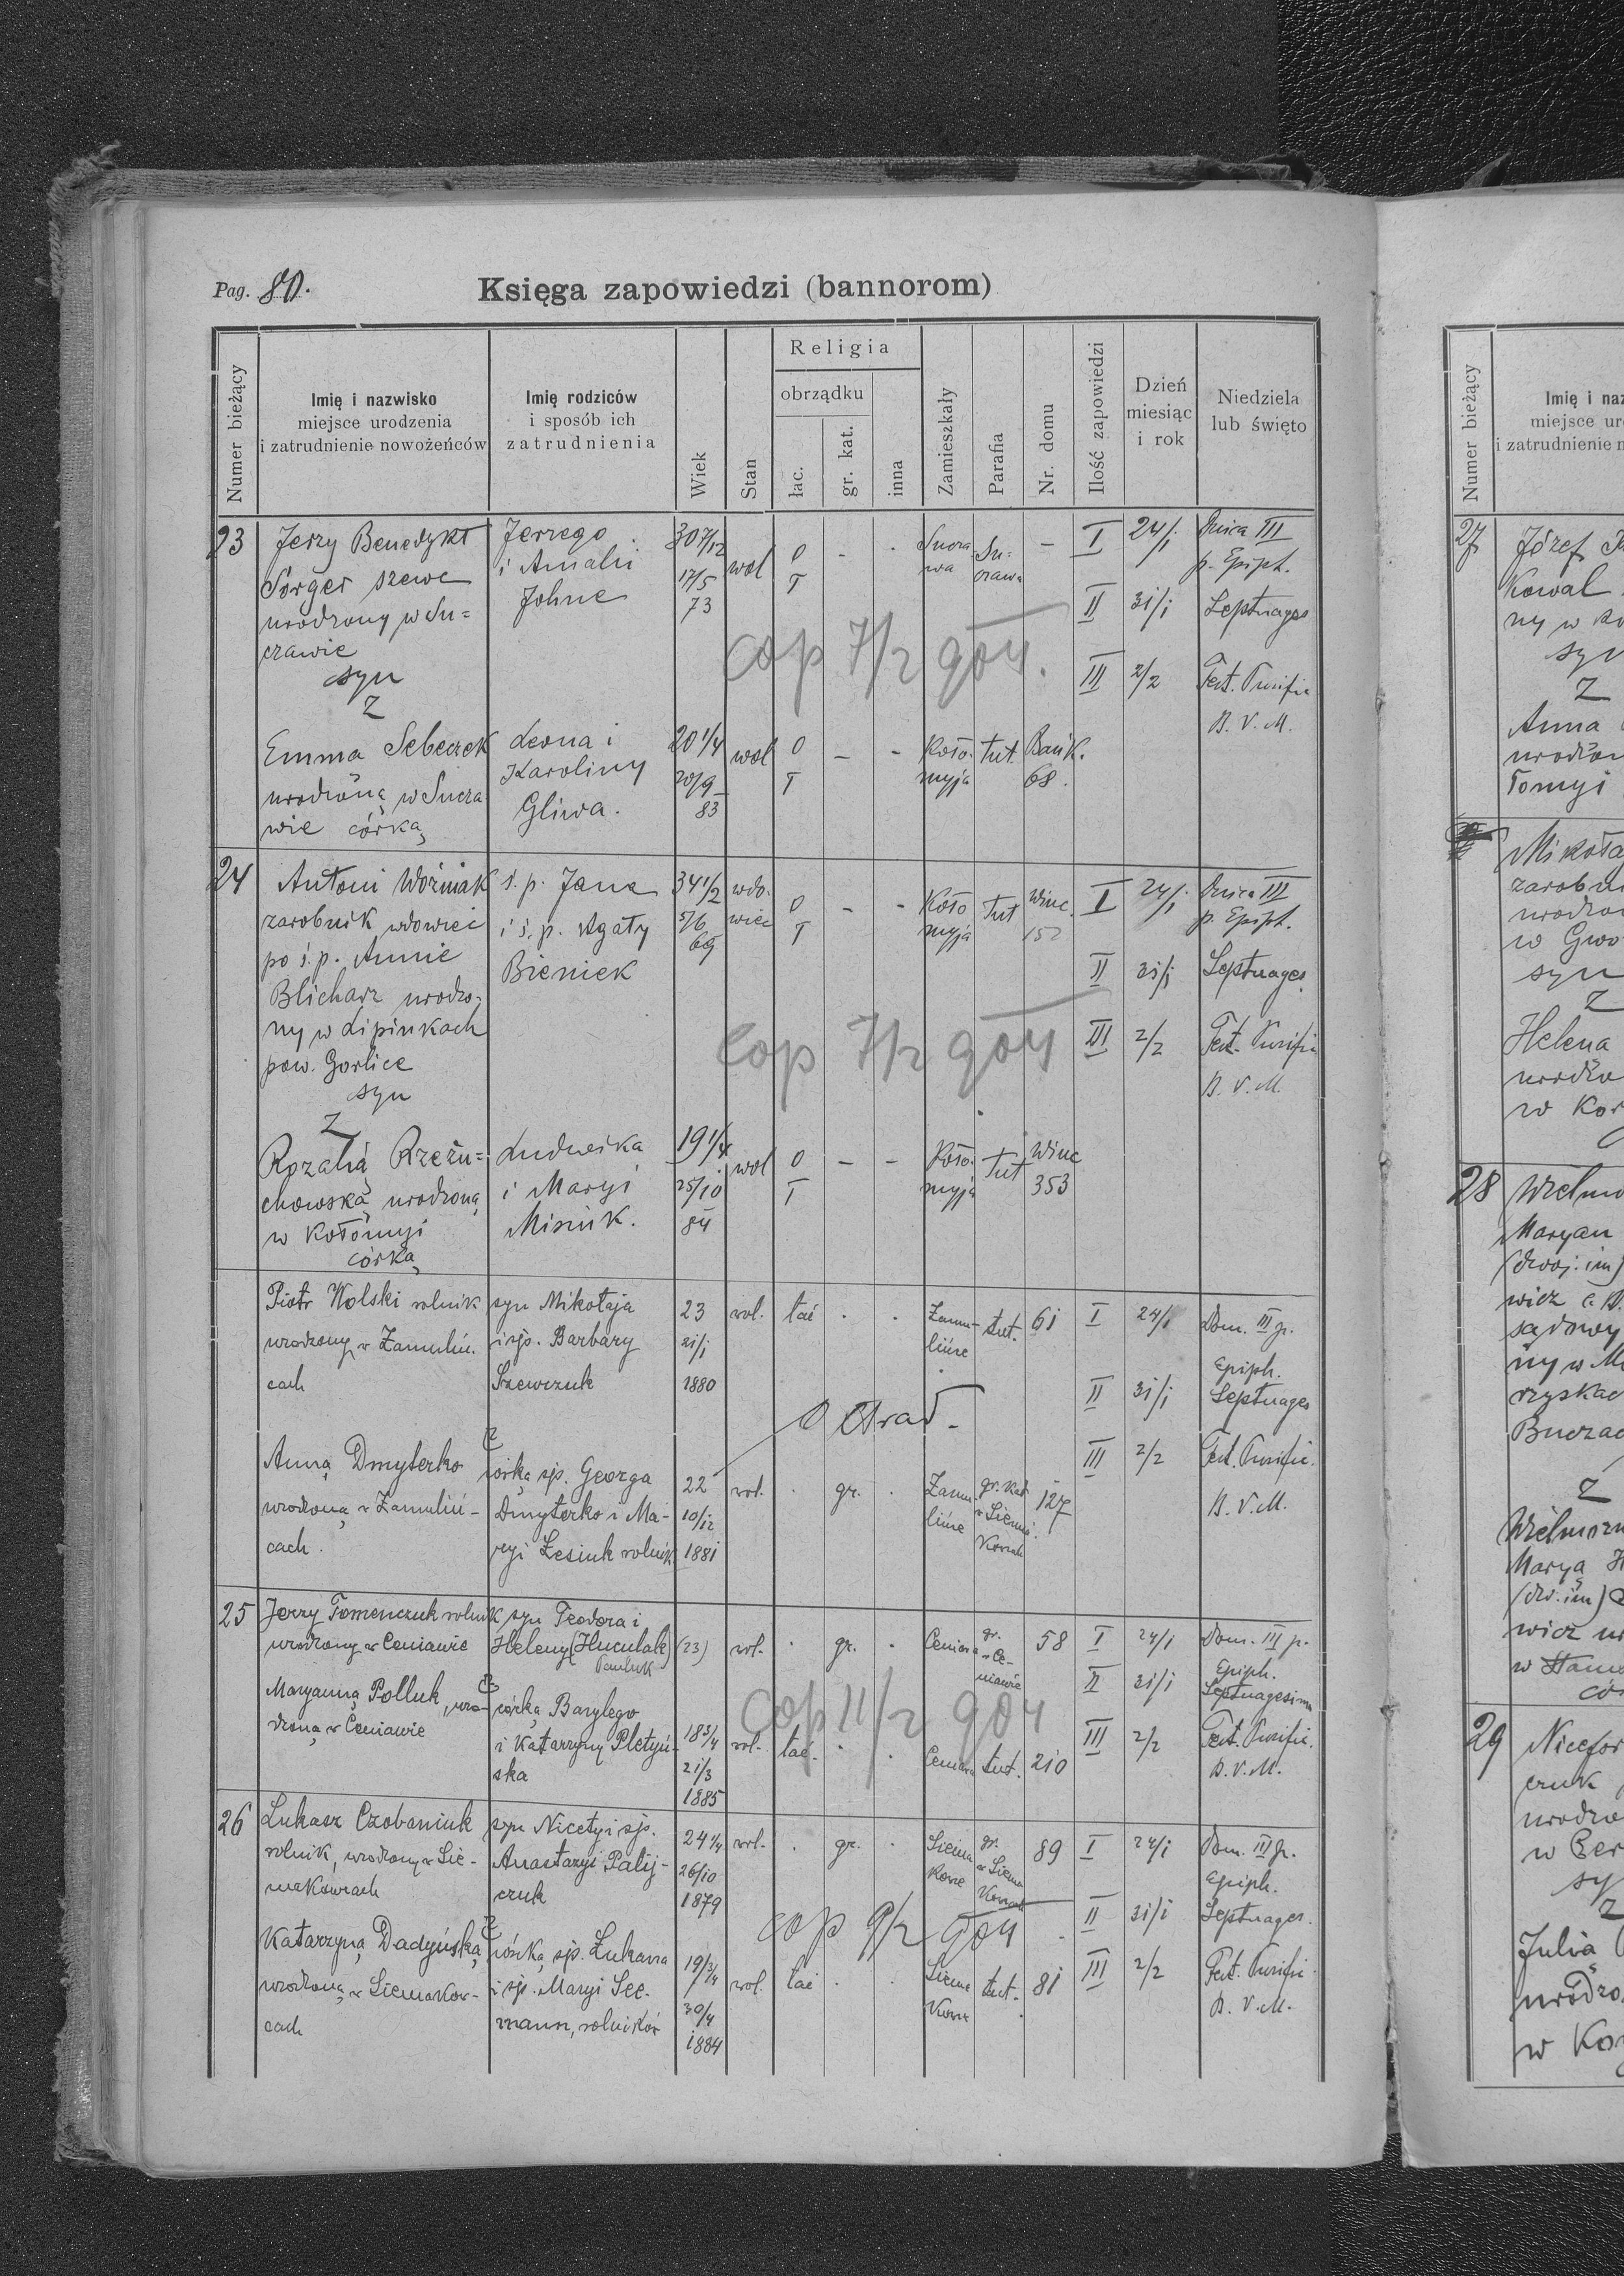 Pag. 80.
Księga zapowiedzi (bannorom)
Numer bieżący
Imię i nazwisko
miejsce urodzenia
i zatrudnienie nowożeńców
Imię rodziców
i sposób ich
zatrudnienia
Wiek
Stan
Religia
obrządku
łac.
gr. kat.
inna
Zamieszkały
Parafia
Nr. domu
Ilość zapowiedzi
Dzień
miesiąc
i rok
Niedziela
lub święto
23
Jerzy Benedykt
Sorger szewc
urodzony w Su=
czawie
syn
Z
Jerzego
i Amalii
Johne
30 7/12
17/5
73
wol
O
T
-
-
Sucza
wa
Su=
czawa
-
I 24/1 Dnica III
p. Epiph.
II 31/1 Septuages
III 2/2 Fest. Purific
B. V. M.
cop 7/2 904.
Emma Sebeczek
urodzoną w Sucza
wie córką
Leona i
Karoliny
Gliwa.
20 1/4
20/9
83
wol
O
T
-
-
Koło-
myja
tut.
Bank.
68.
24
Antoni Woźniak
zarobnik, wdowiec
po ś.p. Annie
Blicharz urodzo-
ny w Lipinkach
pow. Gorlice
syn
Z
ś. p. Jana
i ś. p. Agaty
Bieniek
34 1/2
5/6
69
wdo-
wiec
O
T
-
-
Koło
myja
tut
Winc.
152
I 24/1 Dnica III
p. Epiph.
II 31/1 Septuages.
III 2/2 Fest. Purific
B. V. M.
cop 7/2 904
Rozalią Rzeżu=
chowską urodzoną
w Kołomyi
córką
Ludwika
i Maryi
Misiuk.
19 1/4
25/10
84
wol
O
T
-
-
Koło-
myja
tut
Winc
353
Piotr Wolski rolnik
urodzony w Zamuliń-
cach
syn Mikołaja
i śp. Barbary
Szewczuk
23
21/1
1880
wol.
łać
Zamu-
lińce
tut.
61
I 24/1 Dom. III p.
Epiph.
II 31/1 Septuages
III 2/2 Fest. Purific.
B. V. M.
Z
Anną Dmyterko
urodzoną w Zamuliń-
cach.
córką śp. Georga
Dmyterko i Ma-
ryi Lesiuk rolnik.
22
10/12
1881
wol.
gr.
Zamu-
lińce
gr. kat
w Siema
Kowcach
127
25
Jerzy Tomenczuk rolnik
urodzony w Ceniawie
syn Teodora i
Heleny (Huculak)
Pawluk
(23)
wol.
gr.
Ceniawa
gr.
w Ce-
niawie
58
I 24/1 Dom. III p.
Epiph.
II 31/1 Septuagesima
III 2/2 Fest. Purific.
B. V. M.
cop 11/2 904
Z
Maryanną Polluk, uro-
dzoną w Ceniawie
córką Bazylego
i Katarzyny Pletyń-
ska
18 3/4
21/3
1885
wol.
łać.
Ceniawa
tut.
210
26
Łukasz Czobaniuk
rolnik, urodzony w Sie-
makowcach
syn Nicety i śp.
Anastazyi Palij-
czuk
24 1/4
26/10
1879
wol.
gr.
Siema
kowce
gr.
w Siema
Kowcach
89
I 24/1 Dom. III p.
Epiph.
II 31/1 Septuages.
III 2/2 Fest. Purific.
B. V. M.
cop 9/2 904
Z
Katarzyną Dadyńską
urodzoną w Siemakow-
cach
córką śp. Łukasza
i śp. Maryi See-
mann, rolników
19 3/4
30/4
1884
wol.
łać
Siema
Kowce
tut.
81
Numer bieżący
Imię i naz
miejsce ur
i zatrudnienie n
27
Józef
Kowal
ny w
syn
Z
Anna
urodzon
łomyi
Mikoła
zarobn
urodzo
w Gwo
syn
Z
Helena
urodzo
w Kor
28
Wielmo
Maryan
(dwoj. im)
wicz c. k.
sądowy
ny w
rzyskac
Buczac
Z
Wielmożn
Marya H
(dw. im)
wicz ur
w Stanis
có
29
Nicefor
czuk
urodzo
w Cer
sy
Z
Julia
urodzo
w Kor